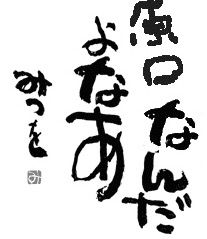 原口なんだ
よなあ
みつを
み